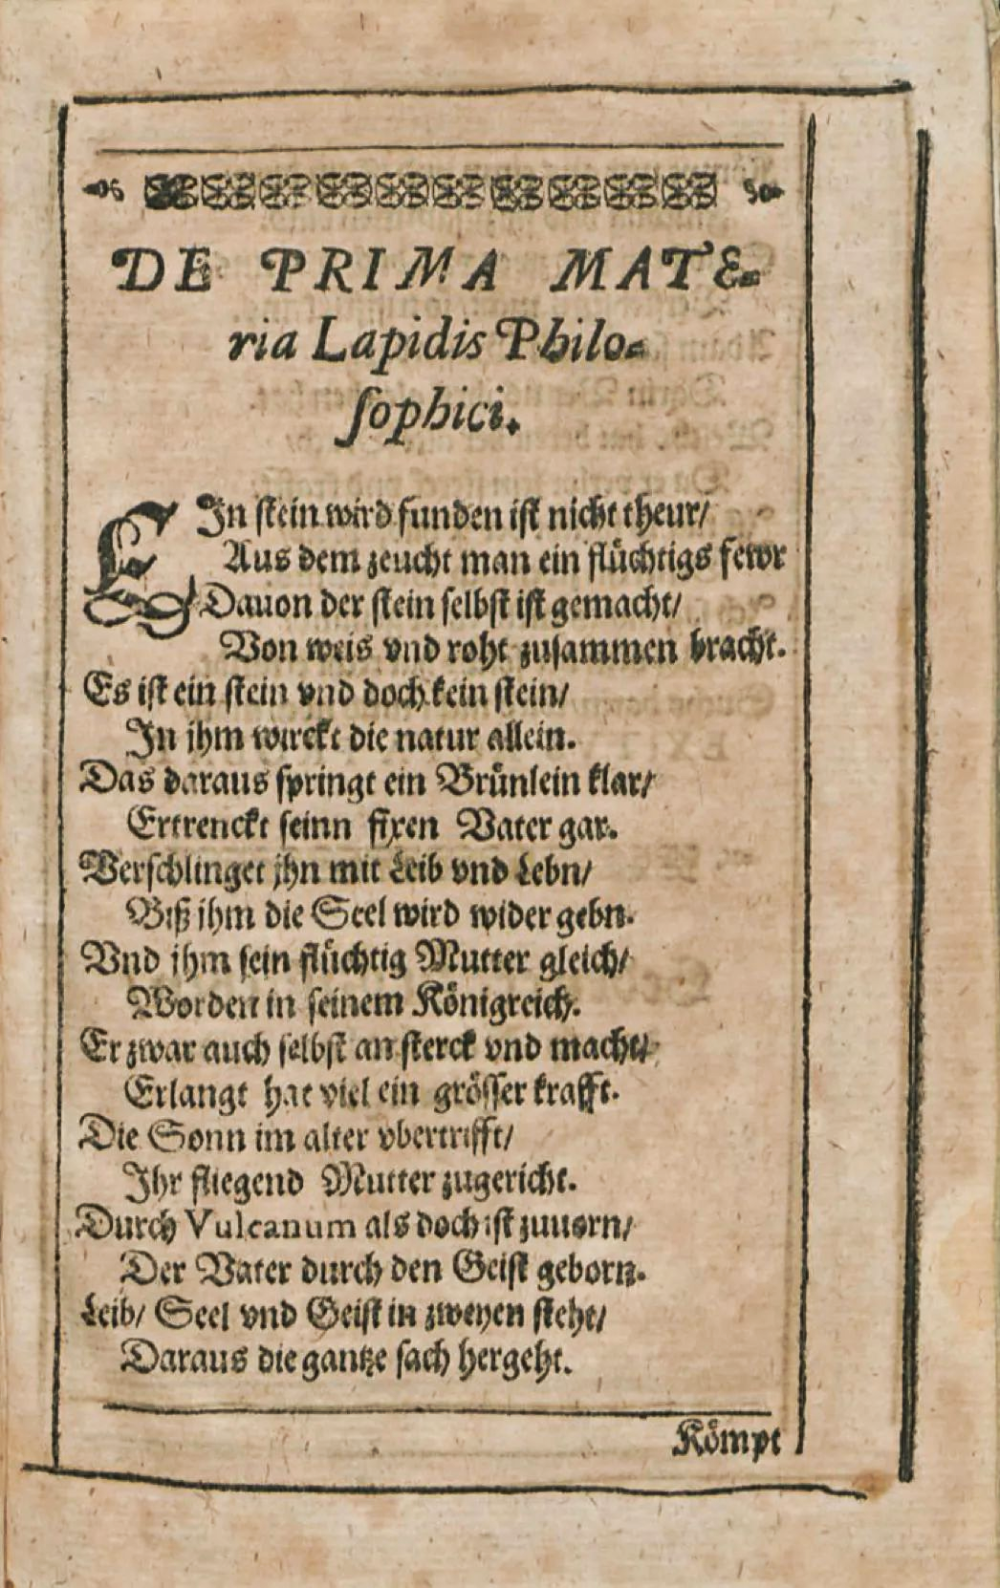 DE PRIMA MATE-
ria Lapidis Philo-
ſophici.
EIn ſtein wird funden iſt nicht theur/
Aus dem zeucht man ein flüchtigs fewr
Dauon der ſtein ſelbſt iſt gemacht/
Von weis vnd roht zuſammen bracht.
Es iſt ein ſtein vnd doch kein ſtein/
In jhm wirckt die natur allein.
Das daraus ſpringt ein Brünlein klar/
Ertrenckt ſeinn fixen Vater gar.
Verſchlinget jhn mit Leib vnd Lebn/
Biß jhm die Seel wird wider gebn.
Vnd jhm ſein flüchtig Mutter gleich/
Worden in ſeinem Königreich.
Er zwar auch ſelbſt an ſterck vnd macht/
Erlangt hat viel ein gröſſer krafft.
Die Sonn im alter vbertrifft/
Ihr fliegend Mutter zugericht.
Durch Vulcanum als doch iſt zuuorn/
Der Vater durch den Geiſt geborn.
Leib/ Seel vnd Geiſt in zweyen ſteht/
Daraus die gantze ſach hergeht.
Kömpt